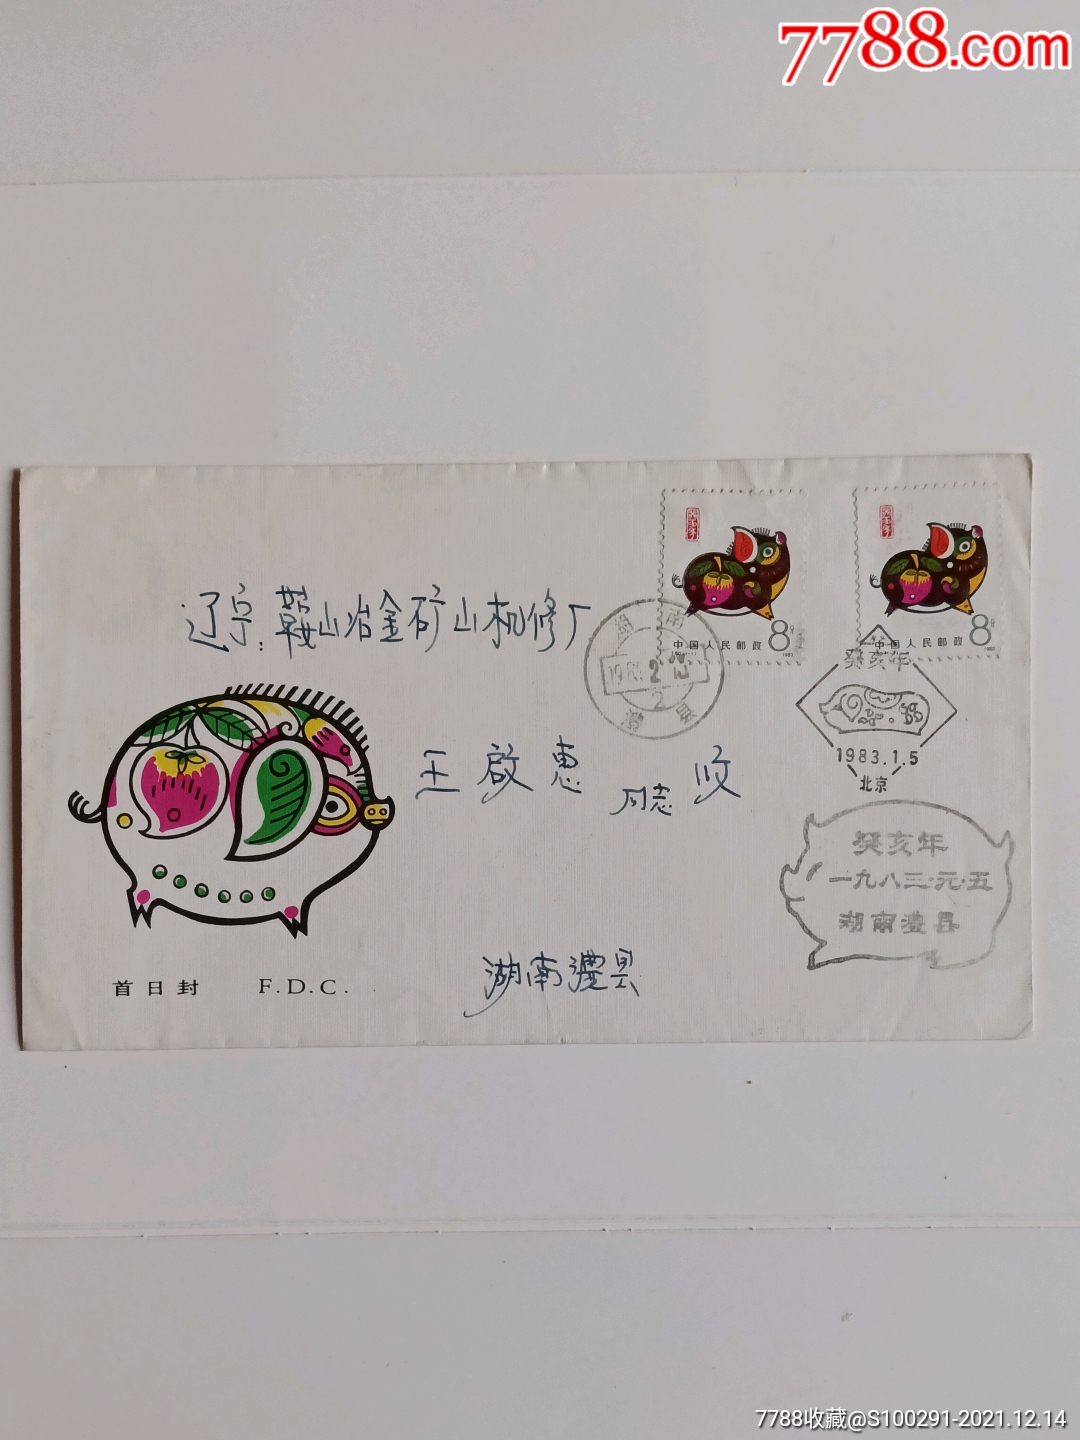 7788.com
癸亥年
8分
中国人民邮政
1983
癸亥年
8分
中国人民邮政
辽宁:鞍山冶金矿山机修厂
湖南
2
澧县
癸亥年
1983.1.5
北京
王啟惠 同志 收
癸亥年
一九八三·元·五
湖南澧县
湖南澧县
首日封 F.D.C.
7788收藏@S100291-2021.12.14